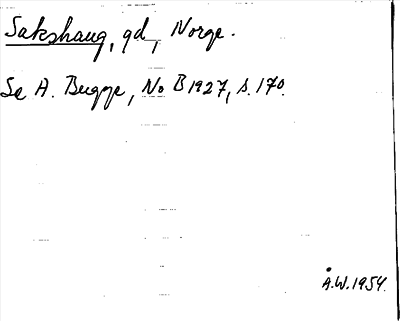 Sakshaug, gd, Norge.
Se A. Bugge, No B 1927, s. 170.
Å.W. 1954.